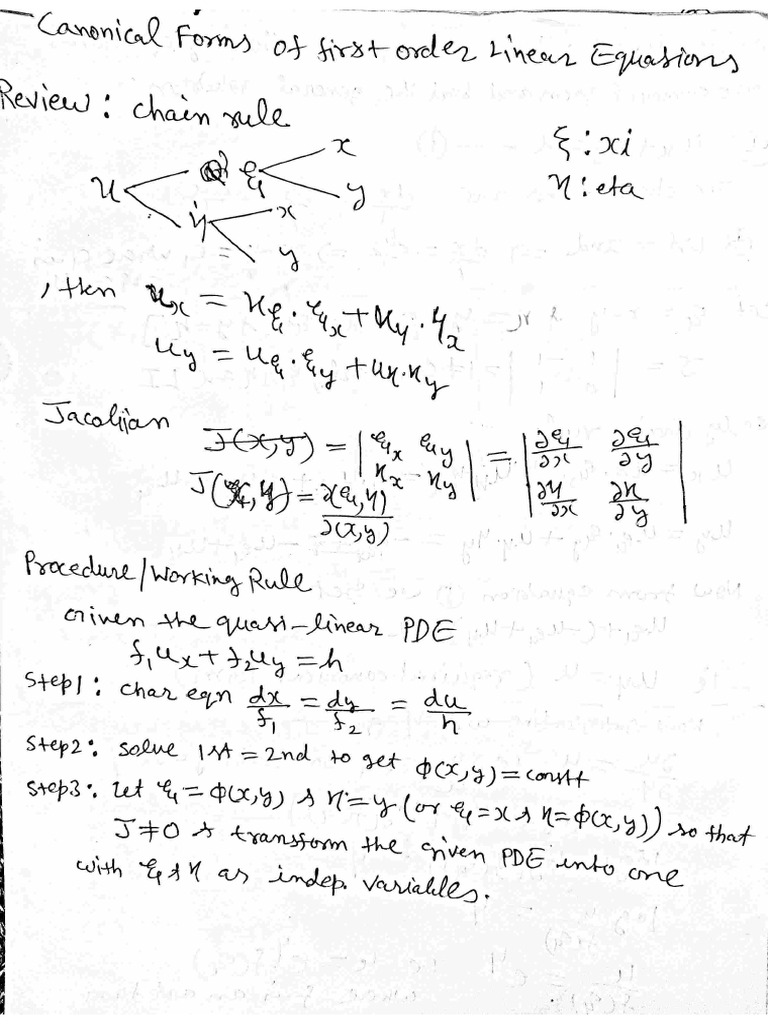 Canonical Forms of first order Linear Equations
Review: chain rule
u ξ x y
η x y
ξ : xi
η : eta
, then u_x = u_ξ · ξ_x + u_η · η_x
u_y = u_ξ · ξ_y + u_η · η_y
Jacobian J(x,y) = | ξ_x ξ_y | = | ∂ξ/∂x ∂ξ/∂y |
| η_x η_y | | ∂η/∂x ∂η/∂y |
J(ξ,η) = ∂(ξ,η)/∂(x,y)
Procedure/Working Rule
Given the quasi-linear PDE
f₁u_x + f₂u_y = h
Step1: char eqn dx/f₁ = dy/f₂ = du/h
Step2: solve 1st = 2nd to get φ(x,y) = constt
Step3: Let ξ = φ(x,y) & η = y (or ξ = x & η = φ(x,y)) so that
J ≠ 0 & transform the given PDE into one
with ξ & η as indep. variables.